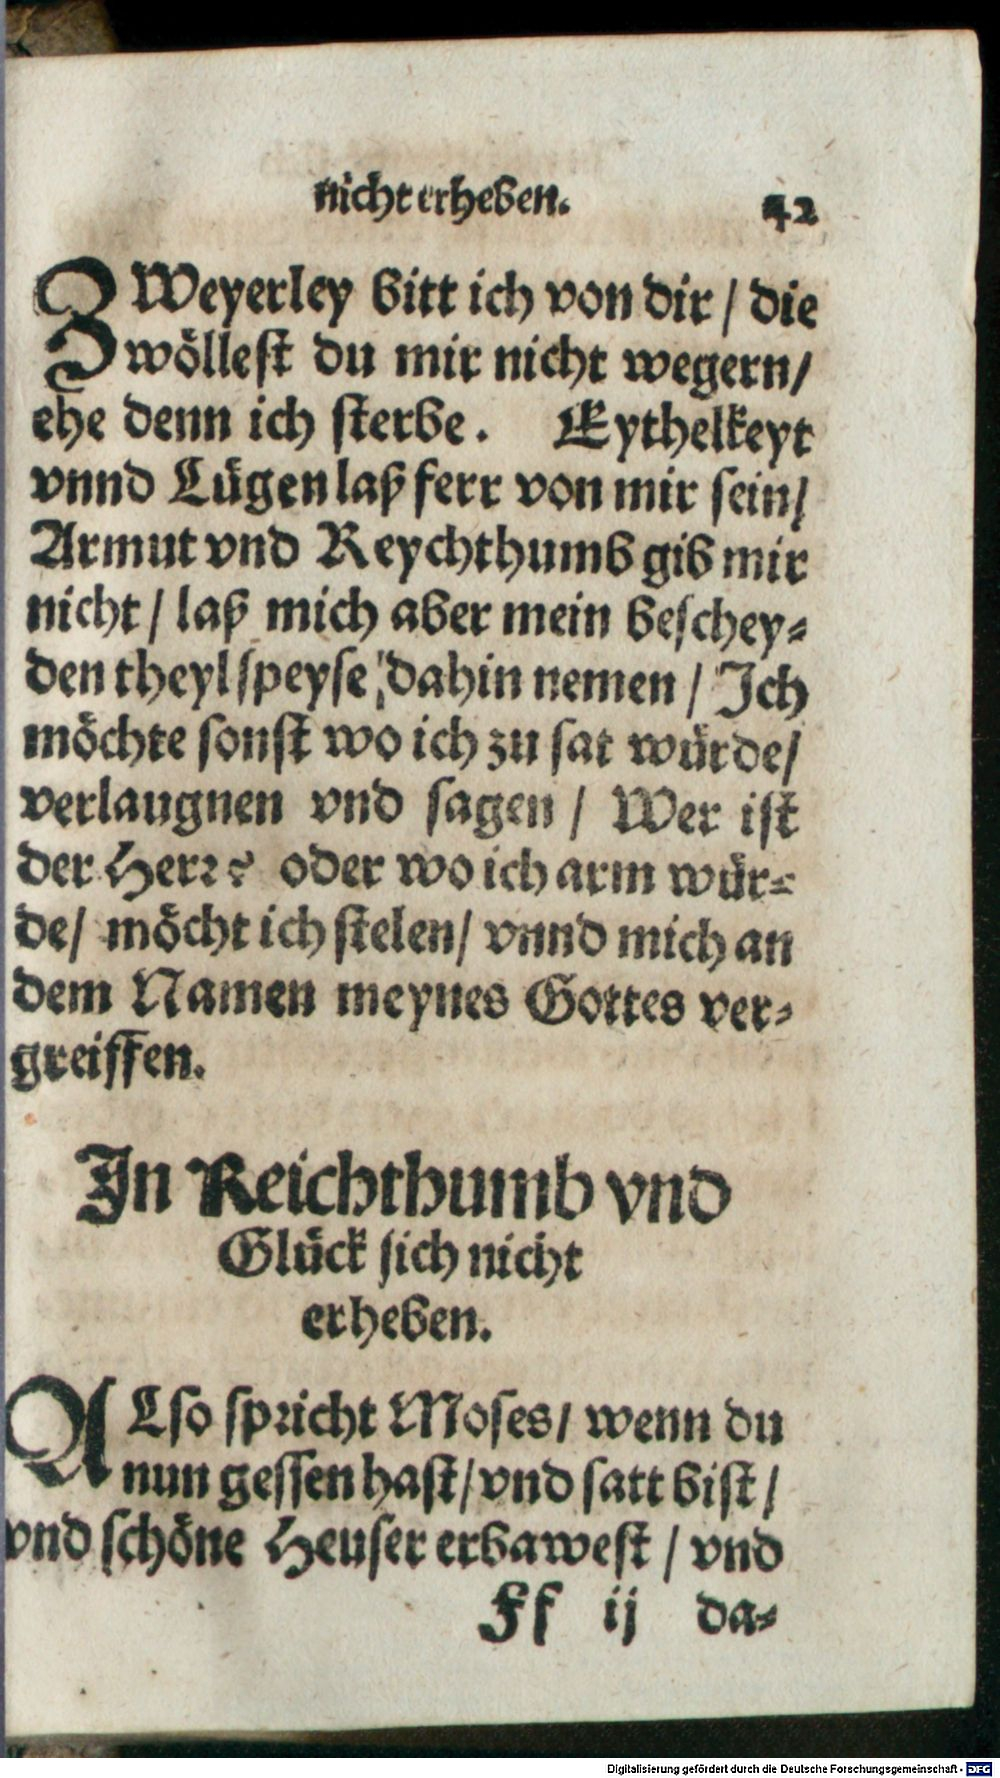 nicht erheben. 42
ZWeyerley bitt ich von dir / die
wöllest du mir nicht wegern /
ehe denn ich sterbe. Eythelkeyt
vnnd Lügen laß ferr von mir sein /
Armut vnd Reychthumb gib mir
nicht / laß mich aber mein beschey-
den theyl speyse / dahin nemen / Ich
möchte sonst wo ich zu sat würde /
verlaugnen vnd sagen / Wer ist
der Herr? oder wo ich arm wür-
de / möcht ich stelen / vnnd mich an
dem Namen meynes Gottes ver-
greiffen.
In Reichthumb vnd
Glück sich nicht
erheben.
ALso spricht Moses / wenn du
nun gessen hast / vnd satt bist /
vnd schöne Heuser erbawest / vnd
Ff ij da-
Digitalisierung gefördert durch die Deutsche Forschungsgemeinschaft - DFG